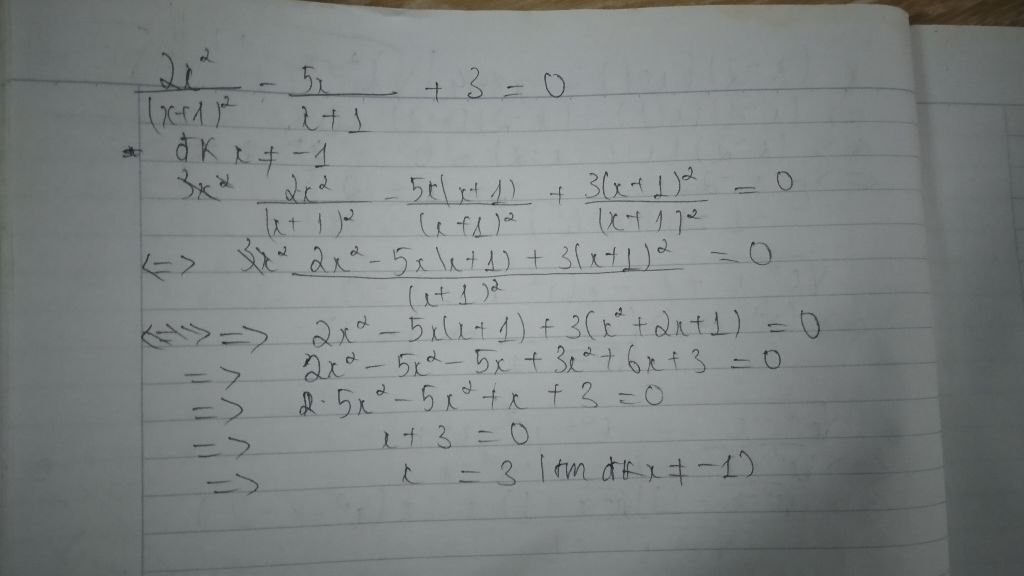 2x²/(x+1)² - 5x/(x+1) + 3 = 0
* đK x ≠ -1
3x² 2x²/(x+1)² - 5x(x+1)/(x+1)² + 3(x+1)²/(x+1)² = 0
<=> 3x² (2x² - 5x(x+1) + 3(x+1)²)/(x+1)² = 0
<=>> => 2x² - 5x(x+1) + 3(x² + 2x + 1) = 0
=> 2x² - 5x² - 5x + 3x² + 6x + 3 = 0
=> 5x² - 5x² + x + 3 = 0
=> x + 3 = 0
=> x = 3 (tm đk x ≠ -1)